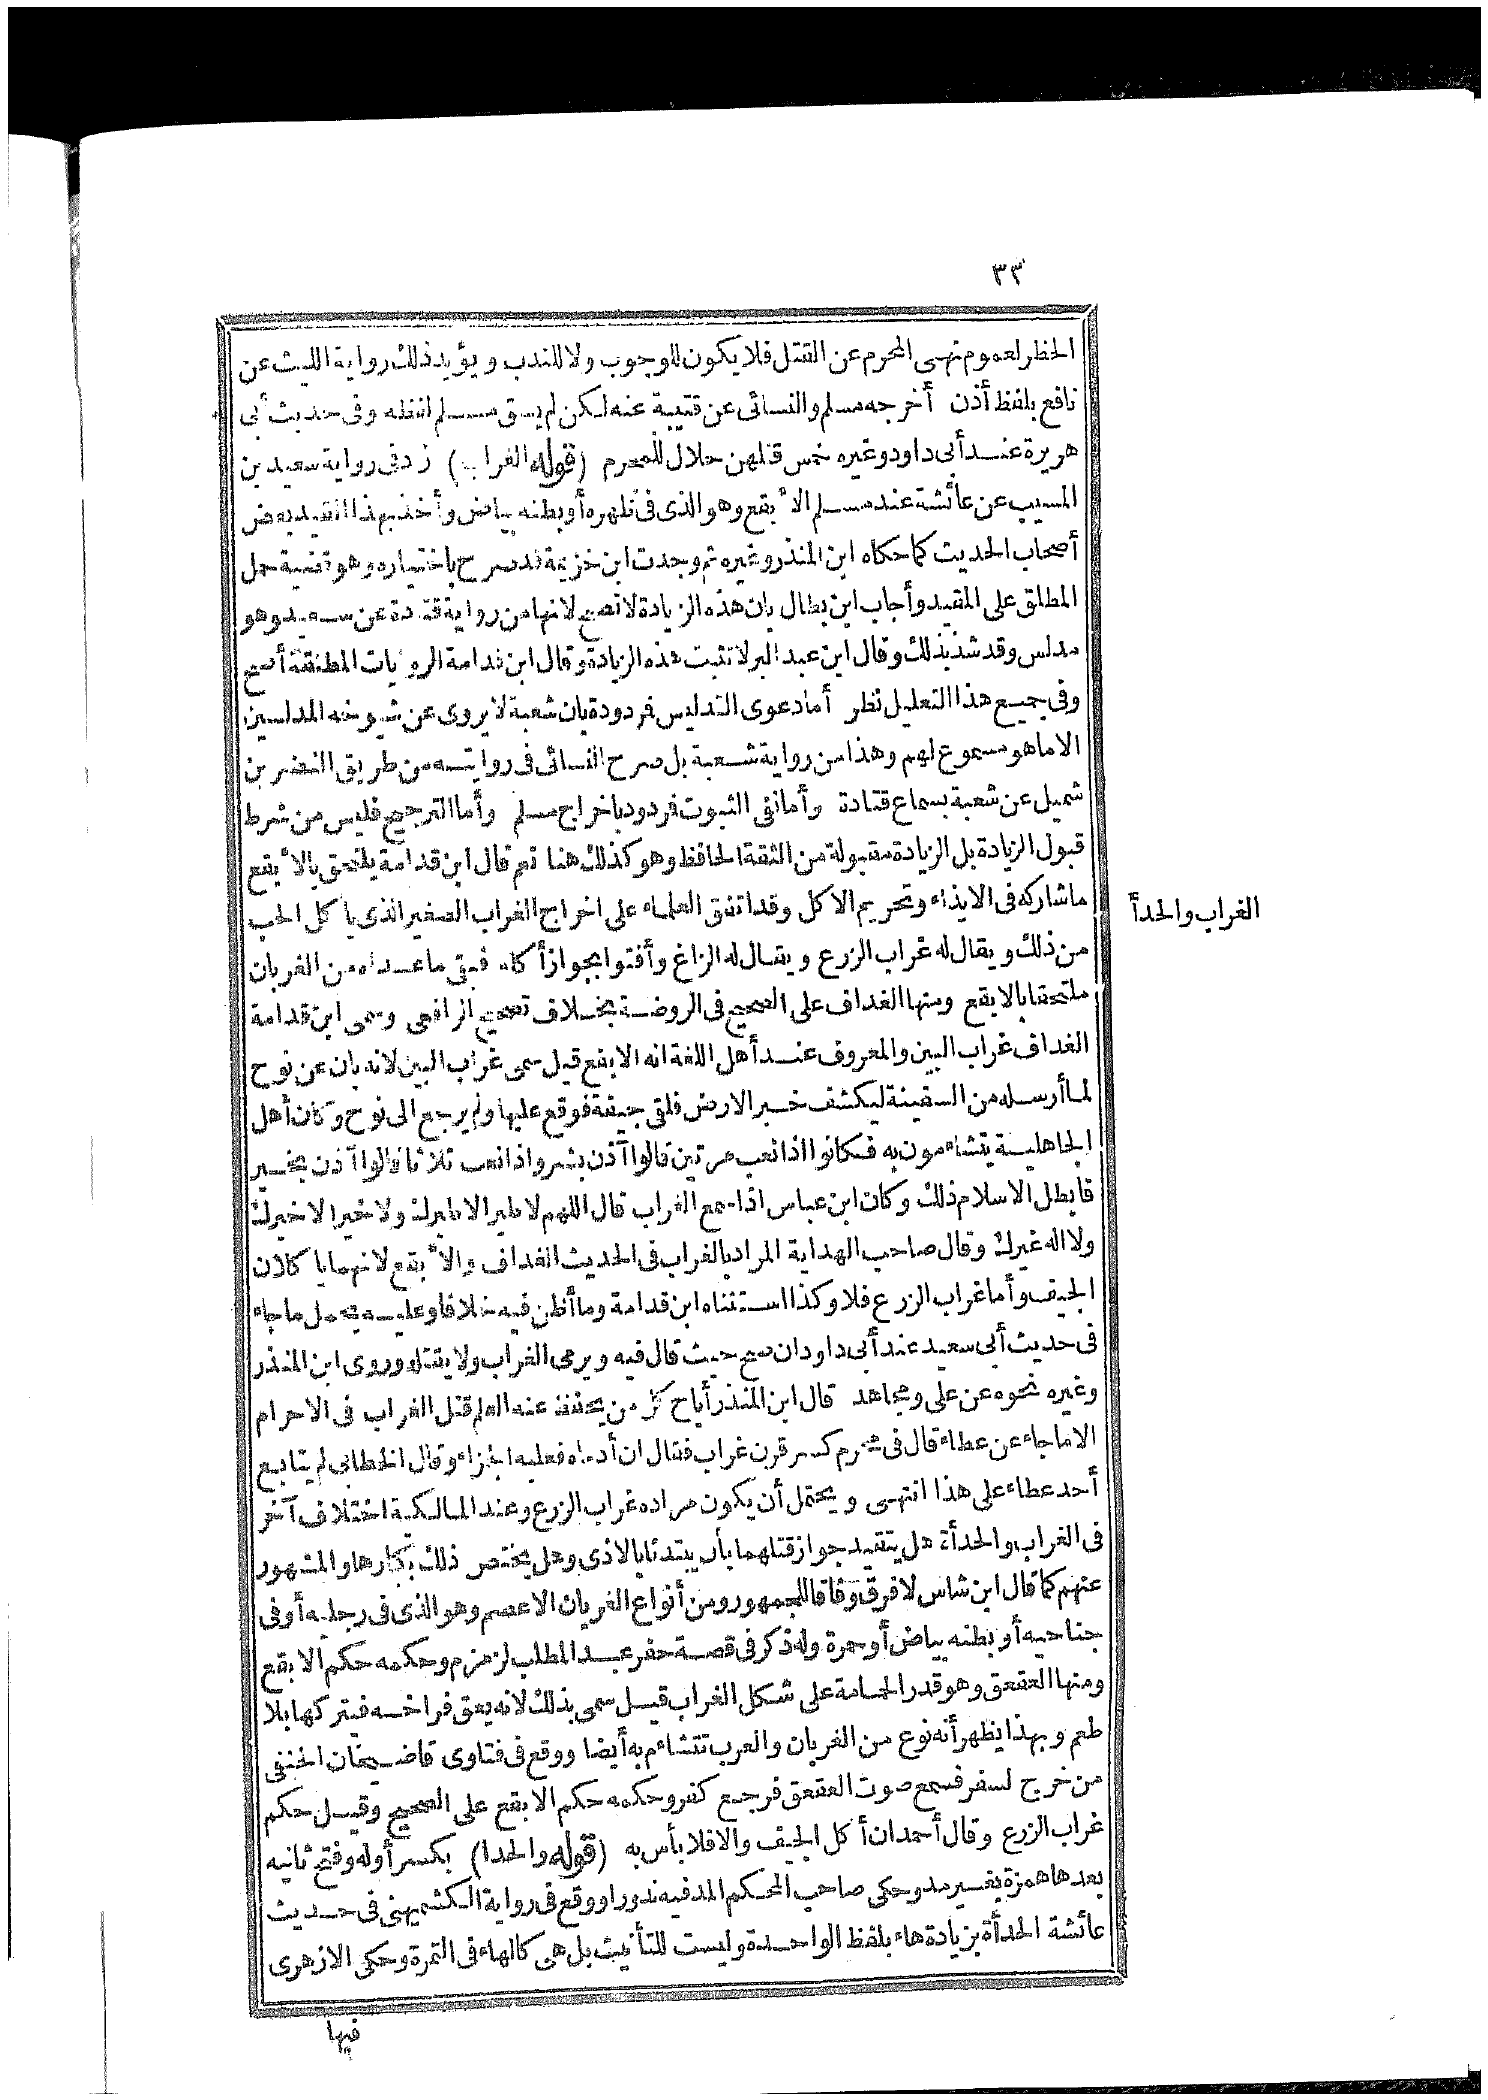 ٣٣
الحظر لعموم نهى المحرم عن القتل فلا يكون للوجوب ولا للندب ويؤيد ذلك رواية الليث عن
نافع بلفظ أذن أخرجه مسلم والنسائى عن قتيبة عنه لكن لم يسق مسلم لفظه وفى حديث أبى
هريرة عند أبى داود وغيره خمس قتلهن حلال للمحرم (قوله الغراب) زاد فى رواية سعيد بن
المسيب عن عائشة عند مسلم الأبقع وهو الذى فى ظهره أو بطنه بياض وأخذ بهذا القيد بعض
أصحاب الحديث كما حكاه ابن المنذر وغيره ثم وجدت ابن خزيمة قد صرح باختياره وهو قضية حمل
المطلق على المقيد وأجاب ابن بطال بان هذه الزيادة لا تصح لانها من رواية قتادة عن سعيد وهو
مدلس وقد شذ بذلك وقال ابن عبد البر لا تثبت هذه الزيادة وقال ابن قدامة الروايات المطلقة أصح
وفى جميع هذا التعليل نظر أما دعوى التدليس فردودة بان شعبة لا يروى عن شيوخه المدلسين
الا ما هو مسموع لهم وهذا من رواية شعبة بل صرح النسائى فى روايته من طريق النضر بن
شميل عن شعبة بسماع قتادة وأما نفى الثبوت فردود باخراج مسلم وأما الترجيح فليس من شرط
قبول الزيادة بل الزيادة مقبولة من الثقة الحافظ وهو كذلك هنا نعم قال ابن قدامة يلتحق بالأبقع
ما شاركه فى الايذاء وتحريم الاكل وقد اتفق العلماء على اخراج الغراب الصغير الذى يأكل الحب
الغراب والحدأ
من ذلك ويقال له غراب الزرع ويقال له الزاغ وأفتوا بجواز أكله فبقى ما عداه من الغربان
ملتحقا بالابقع ومنها الغداف على الصحيح فى الروضة بخلاف تصحيح الرافعى وسمى ابن قدامة
الغداف غراب البين والمعروف عند أهل اللغة انه الابقع قيل سمى غراب البين لانه بان عن نوح
لما أرسله من السفينة ليكشف خبر الارض فلقى جيفة فوقع عليها ولم يرجع الى نوح وكان أهل
الجاهلية يتشاءمون به فكانوا اذا نعب مرتين قالوا آذن بشر واذا نعب ثلاثا قالوا آذن بخير
فابطل الاسلام ذلك وكان ابن عباس اذا سمع الغراب قال اللهم لا طير الا طيرك ولا خير الا خيرك
ولا اله غيرك وقال صاحب الهداية المراد بالغراب فى الحديث الغداف والأبقع لانهما يأكلان
الجيف وأما غراب الزرع فلا وكذا استثناه ابن قدامة وما أظن فيه خلافا وعليه يحمل ما جاء
فى حديث أبى سعيد عند أبى داود ان صح حيث قال فيه ويرمى الغراب ولا يقتله وروى ابن المنذر
وغيره نحوه عن على ومجاهد قال ابن المنذر أباح كل من يحفظ عنه العلم قتل الغراب فى الاحرام
الا ما جاء عن عطاء قال فى محرم كسر قرن غراب فقال ان أدماه فعليه الجزاء وقال الخطابى لم يتابع
أحد عطاء على هذا انتهى ويحتمل أن يكون مراده غراب الزرع وعند المالكية اختلاف آخر
فى الغراب والحدأة هل يتقيد جواز قتلهما بأن يبتدئا بالاذى وهل يختص ذلك بكبارها والمشهور
عنهم كما قال ابن شاس لا فرق وفاقا للجمهور ومن أنواع الغربان الاعصم وهو الذى فى رجليه أو فى
جناحيه أو بطنه بياض أو حمرة وله ذكر فى قصة حفر عبد المطلب لزمزم وحكمه حكم الابقع
ومنها العقعق وهو قدر الحمامة على شكل الغراب قيل سمى بذلك لانه يعق فراخه فيتركها بلا
طعم وبهذا يظهر أنه نوع من الغربان والعرب تتشاءم به أيضا ووقع فى فتاوى قاضيخان الحنفى
من خرج لسفر فسمع صوت العقعق فرجع كفر وحكمه حكم الابقع على الصحيح وقيل حكم
غراب الزرع وقال أحمد ان أكل الجيف والا فلا بأس به (قوله والحدا) بكسر أوله وفتح ثانيه
بعدها همزة بغير مد وحكى صاحب المحكم المد فيه ندورا ووقع فى رواية الكشميهنى فى حديث
عائشة الحدأة بزيادة هاء بلفظ الواحدة وليست للتأنيث بل هى كالهاء فى التمرة وحكى الازهرى
فيها